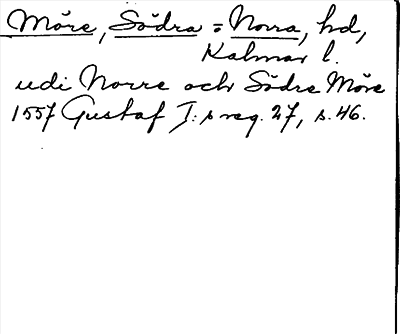 Möre, Södra = Norra, hd,
Kalmar l.
udi Norre och Södre Möre
1557 Gustaf I:s reg. 27, s. 46.